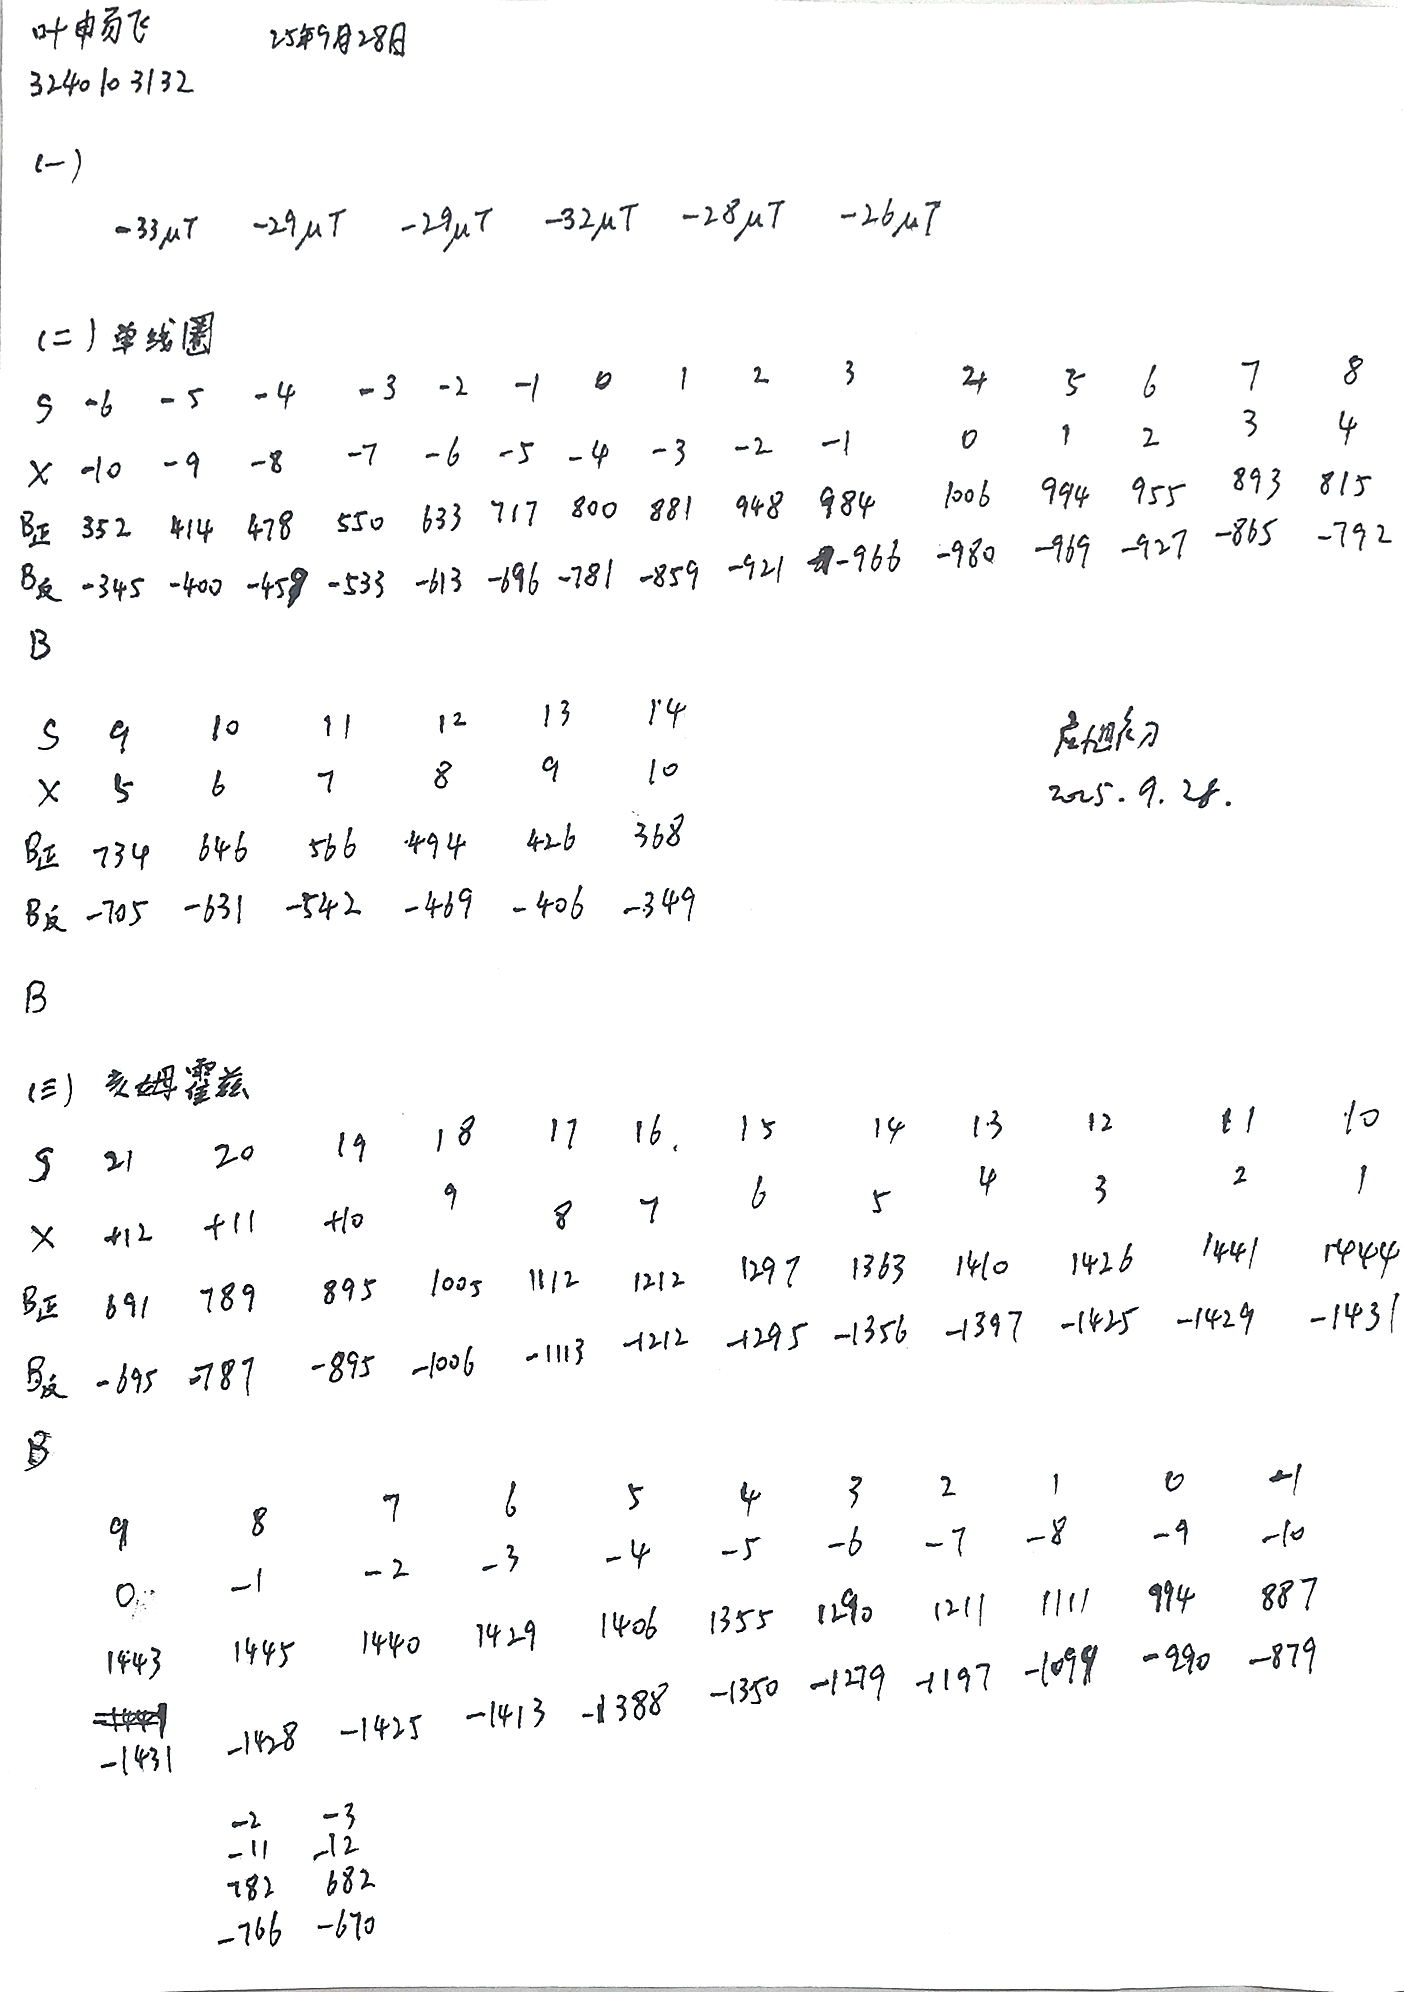 叶申易飞 25年9月28日
3240103132
(一)
-33μT -29μT -29μT -32μT -28μT -26μT
(二) 单线圈
S -6 -5 -4 -3 -2 -1 0 1 2 3 4 5 6 7 8
X -10 -9 -8 -7 -6 -5 -4 -3 -2 -1 0 1 2 3 4
B正 352 414 478 550 633 717 800 881 948 984 1006 994 955 893 815
B反 -345 -400 -459 -533 -613 -696 -781 -859 -921 -966 -980 -969 -927 -865 -792
B
S 9 10 11 12 13 14
X 5 6 7 8 9 10
B正 734 646 566 494 426 368
B反 -705 -631 -542 -469 -406 -349
2025.9.28.
B
(三) 亥姆霍兹
S 21 20 19 18 17 16. 15 14 13 12 11 10
X +12 +11 +10 9 8 7 6 5 4 3 2 1
B正 691 789 895 1005 1112 1212 1297 1363 1410 1426 1441 1444
B反 -695 -787 -895 -1006 -1113 -1212 -1295 -1356 -1397 -1425 -1429 -1431
B
9 8 7 6 5 4 3 2 1 0 -1
0 -1 -2 -3 -4 -5 -6 -7 -8 -9 -10
1443 1445 1440 1429 1406 1355 1290 1211 1111 994 887
-1431 -1428 -1425 -1413 -1388 -1350 -1279 -1197 -1099 -990 -879
-2 -3
-11 -12
782 682
-766 -670